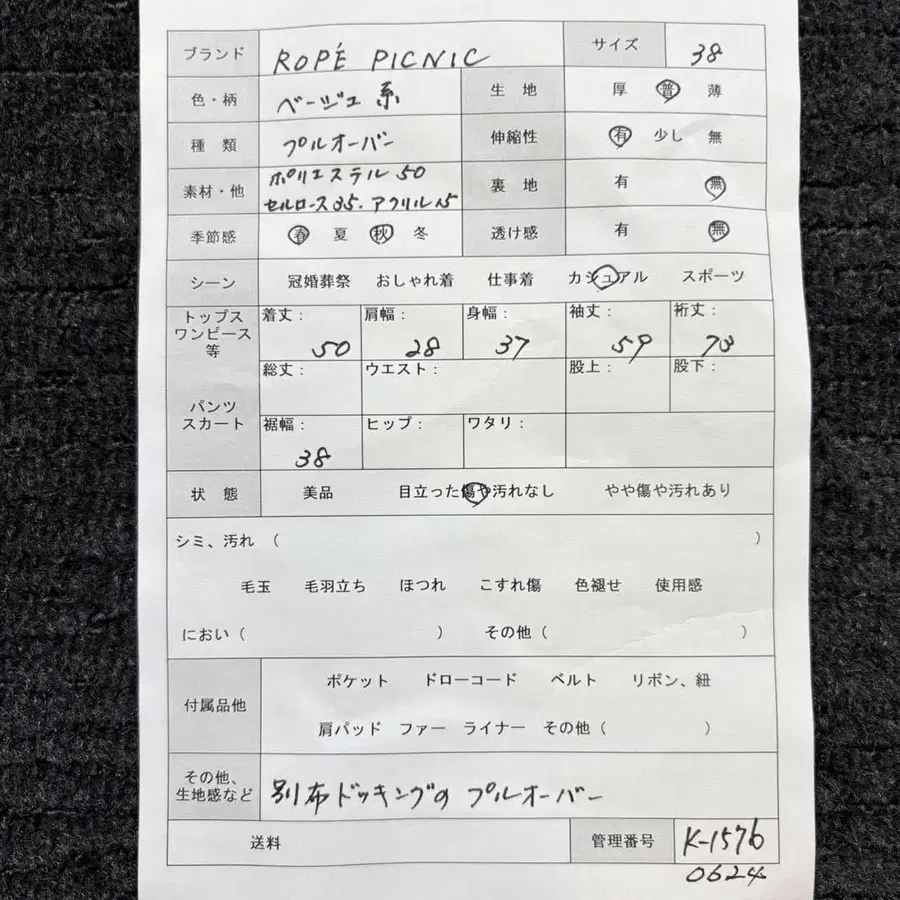 ブランド ROPÉ PICNIC サイズ 38
色・柄 ベージュ系 生地 厚 普 薄
種類 プルオーバー 伸縮性 有 少し 無
素材・他 ポリエステル50
セルロース35.アクリル15
裏地 有 無
季節感 春 夏 秋 冬 透け感 有 無
シーン 冠婚葬祭 おしゃれ着 仕事着 カジュアル スポーツ
トップス
ワンピース
等
着丈: 50 肩幅: 28 身幅: 37 袖丈: 59 裄丈: 73
パンツ
スカート
総丈: ウエスト: 股上: 股下:
裾幅: 38 ヒップ: ワタリ:
状態 美品 目立った傷や汚れなし やや傷や汚れあり
シミ、汚れ ( )
毛玉 毛羽立ち ほつれ こすれ傷 色褪せ 使用感
におい( ) その他( )
付属品他 ポケット ドローコード ベルト リボン、紐
肩パッド ファー ライナー その他( )
その他、
生地感など
別布ドッキングの プルオーバー
送料 管理番号 K-1576
0624